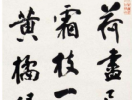 荷盡已
霜枝一
黃橘